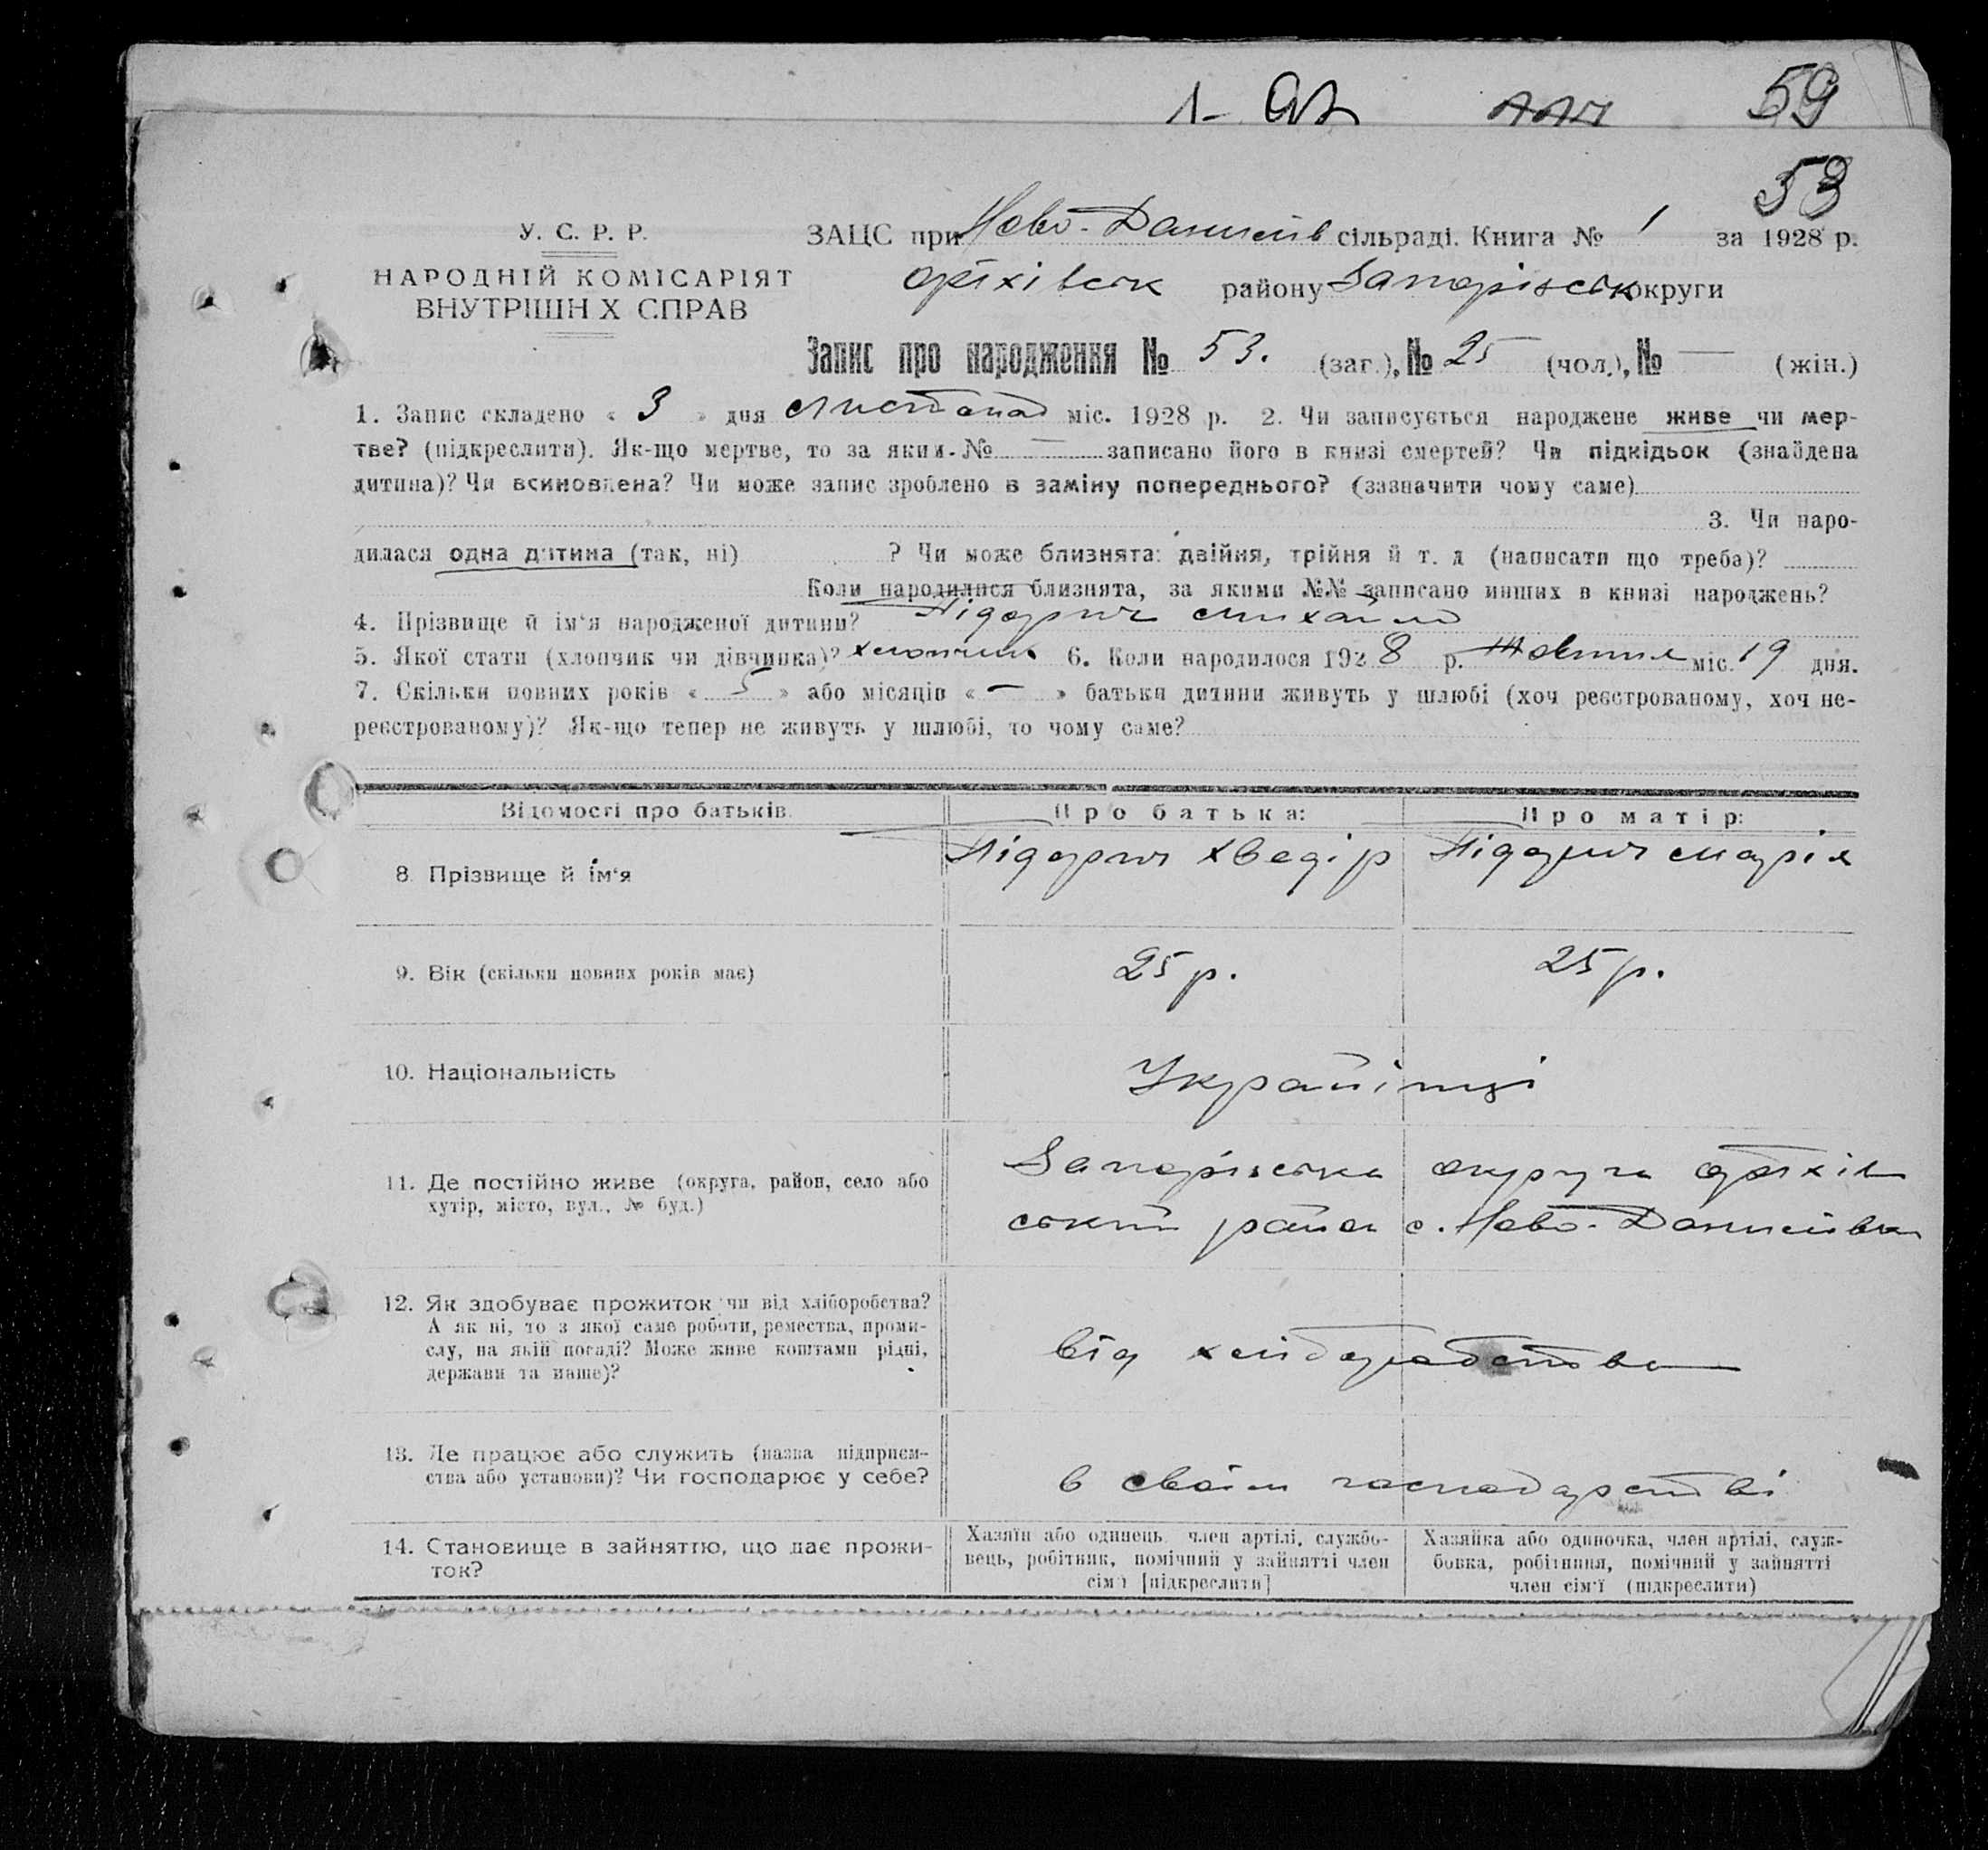 59
53
У. С. Р. Р.
НАРОДНІЙ КОМІСАРІЯТ
ВНУТРІШН Х СПРАВ
ЗАЦС при Ново-Данилів сільраді. Книга № 1 за 1928 р.
Оріхівськ району Запорізськ округи
Запис про народження № 53. (заг.), № 25 (чол.), № — (жін.)
1. Запис складено « 3 » дня листопад міс. 1928 р. 2. Чи записується народжене живе чи мер-
тве? (підкреслити). Як-що мертве, то за яким № — записано його в книзі смертей? Чи підкідьок (знайдена
дитина)? Чи всиновлена? Чи може запис зроблено в заміну попереднього? (зазначити чому саме)
3. Чи наро-
дилася одна дитина (так, ні) ? Чи може близнята: двійня, трійня й т. д (написати що треба)?
Коли народилися близнята, за якими №№ записано инших в книзі народжень?
4. Прізвище й ім'я народженої дитини? Михайло
5. Якої стати (хлопчик чи дівчинка)? хлопчик 6. Коли народилося 1928 р. Жовтня міс. 19 дня.
7. Скільки повних років « 5 » або місяців « — » батьки дитини живуть у шлюбі (хоч реєстрованому, хоч не-
реєстрованому)? Як-що тепер не живуть у шлюбі, то чому саме?
Відомості про батьків
Про батька:
Про матір:
8. Прізвище й ім'я
Хведір
Марія
9. Вік (скільки повних років має)
25 р.
25 р.
10. Національність
Українці
11. Де постійно живе (округа, район, село або
хутір, місто, вул., № буд.)
Запорізська округа Оріхів
ський район с. Ново-Данилівка
12. Як здобуває прожиток чи від хліборобства?
А як ні, то з якої саме роботи, ремества, проми-
слу, на якій посаді? Може живе коштами рідні,
держави та инше)?
Від хліборобства
13. Де працює або служить (назва підприєм-
ства або установи)? Чи господарює у себе?
в своім господарстві
14. Становище в зайняттю, що дає прожи-
ток?
Хазяїн або одинець, член артілі, службо-
вець, робітник, помічний у зайнятті член
сім'ї [підкреслити]
Хазяйка або одиночка, член артілі, служ-
бовка, робітниця, помічний у зайнятті
член сім'ї (підкреслити)